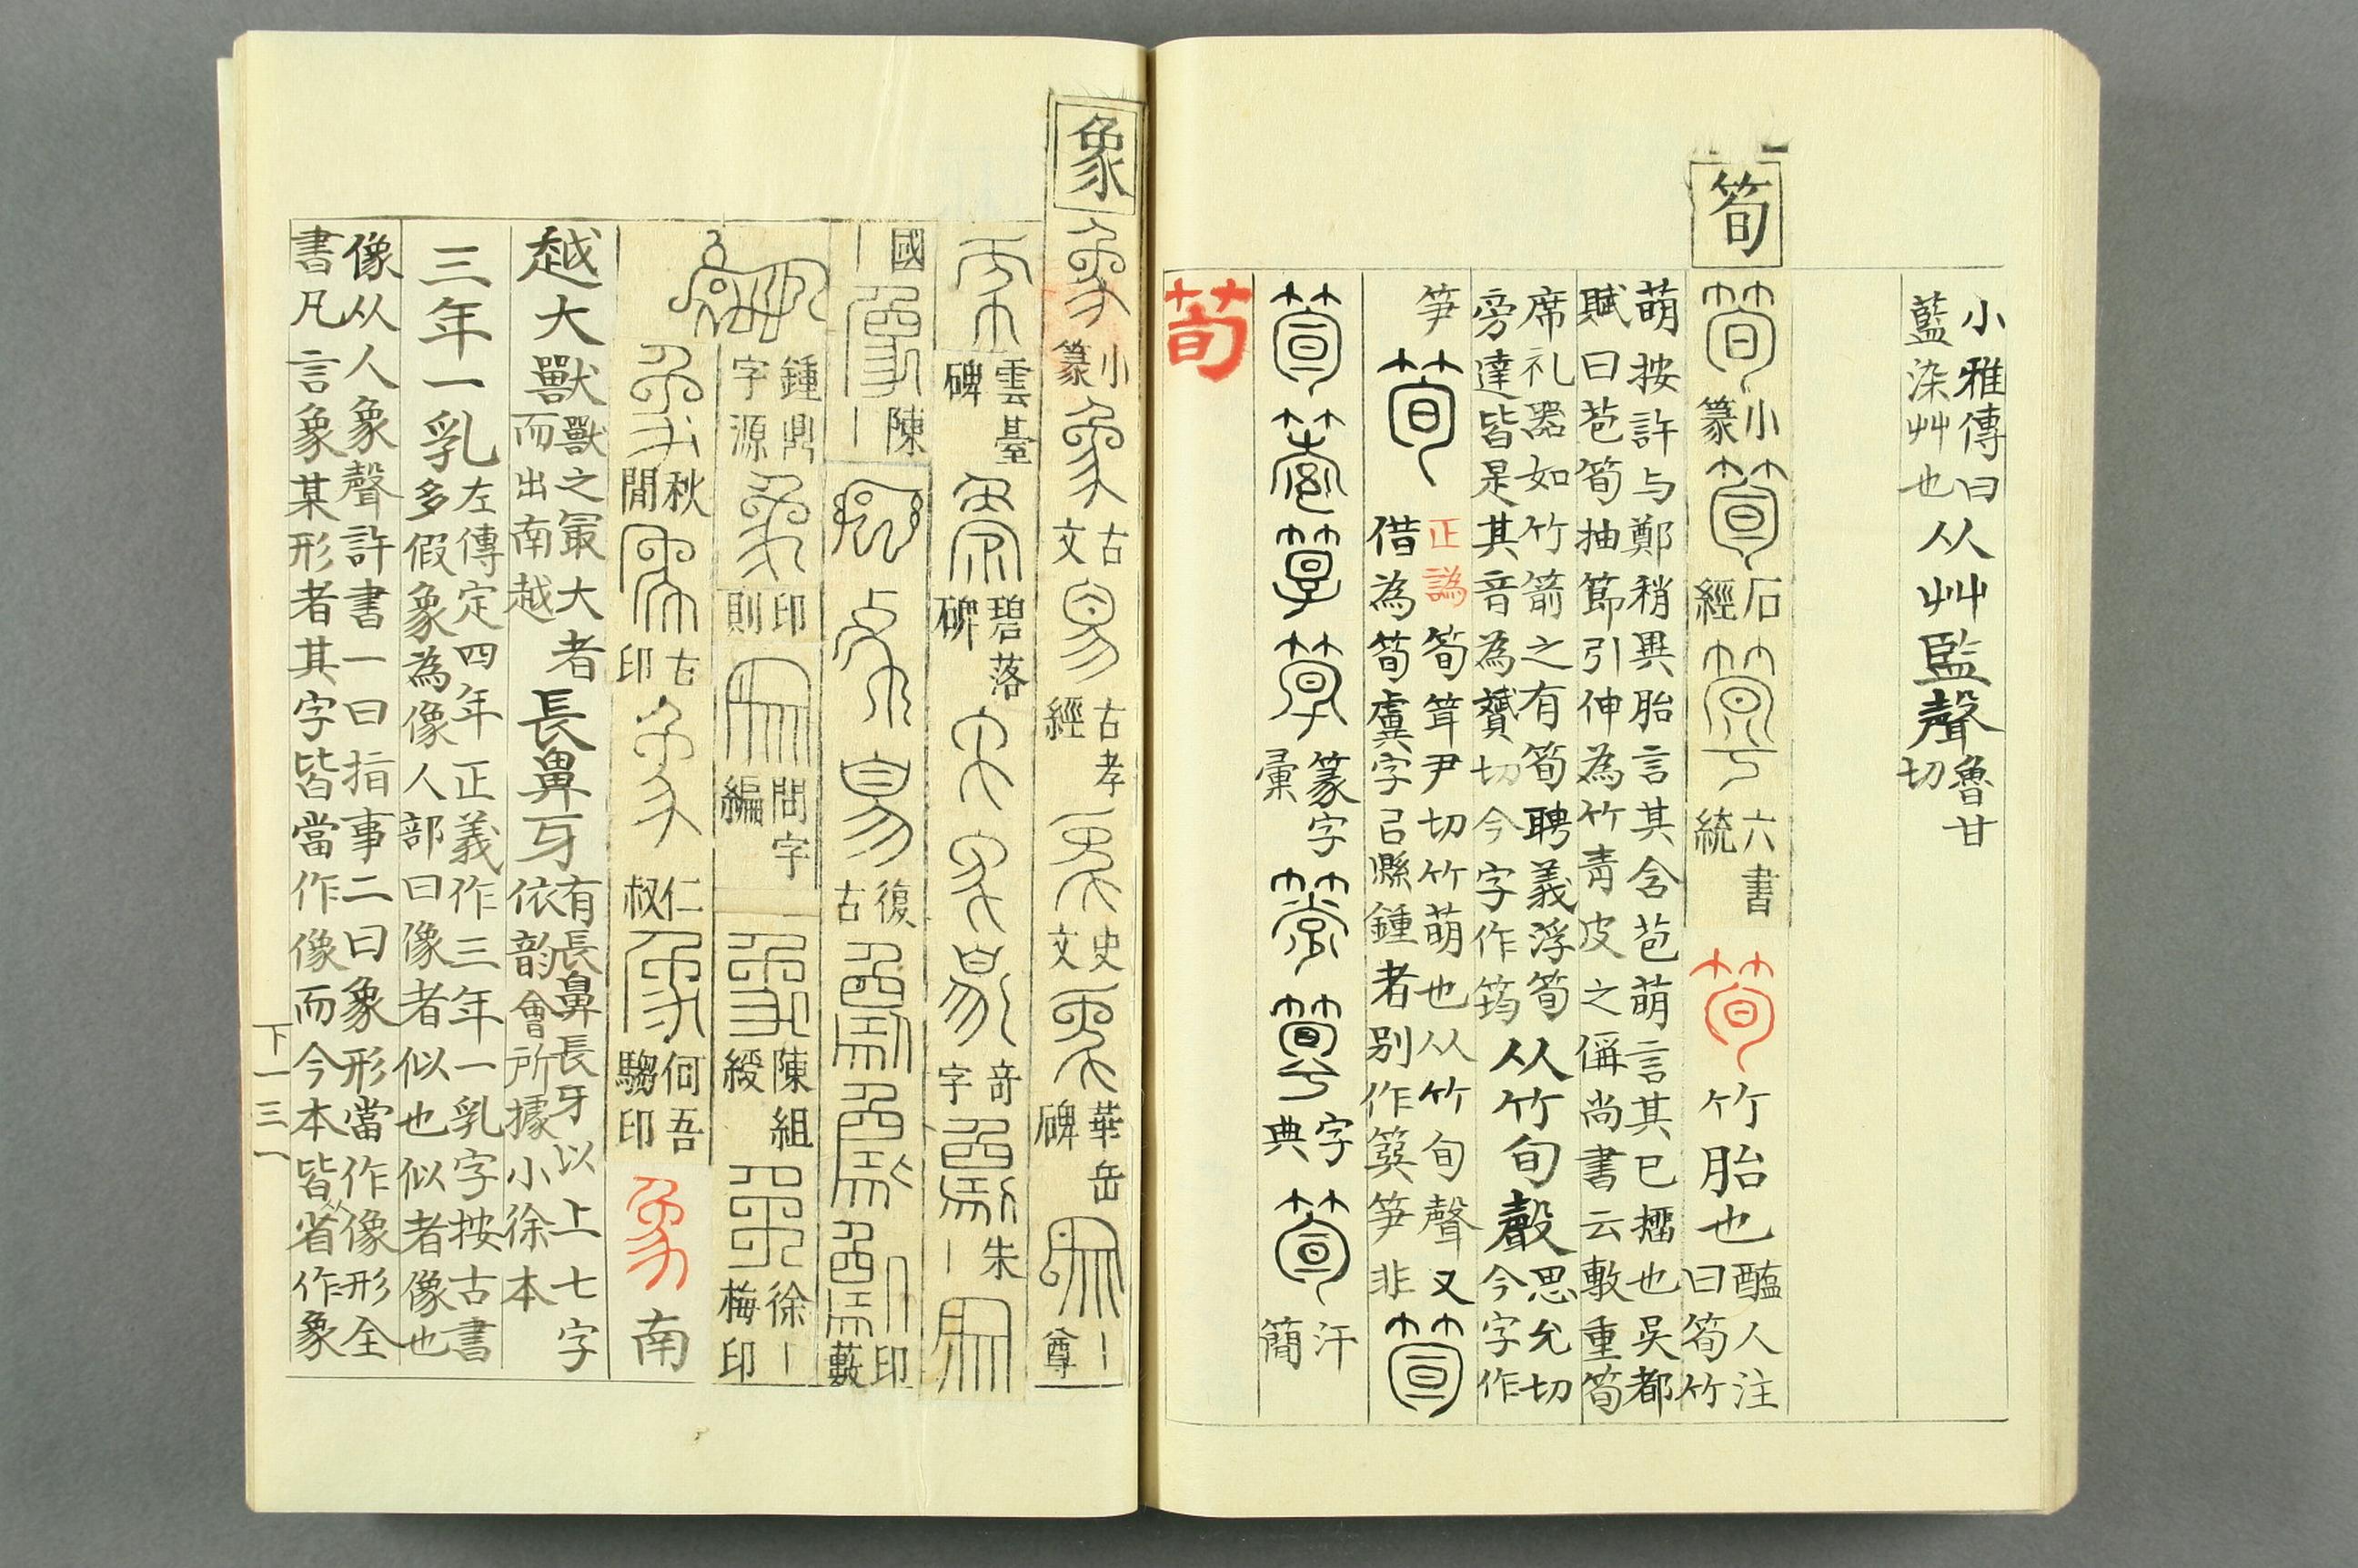 小雅傳曰
藍染艸也
从艸監聲
魯甘
切
筍
小篆
石經
六書統
竹胎也
醢人注
曰筍竹
萌按許与鄭稍異胎言其含苞萌言其已擂也吳都
賦曰苞筍抽節引伸為竹青皮之偁尚書云敷重筍
席礼器如竹箭之有筍聘義浮筍
旁達皆是其音為贇切今字作筠
从竹旬聲
思允切
今字作
笋
正譌
筍筓尹切竹萌也从竹旬聲又
借為筍虡字㠯縣鍾者别作簨笋非
篆字彙
字典
汗簡
荀
象
小篆
古文
古孝經
史文
華岳碑
尊
雲臺碑
碧落碑
奇字
朱
國
陳
復古
印藪
鍾鼎字源
印則
問字編
陳組綬
徐
梅印
秋閒
古印
仁叔
何吾騶印
南
越大獸
獸之冣大者
而出南越
長鼻牙
有長鼻長牙以上七字
依韵會所據小徐本
三年一乳
左傳定四年正義作三年一乳字按古書
多假象為像人部曰像者似也似者像也
像从人象聲許書一曰指事二曰象形當作像形全
書凡言象某形者其字皆當作像而今本皆从省作象
下一三一